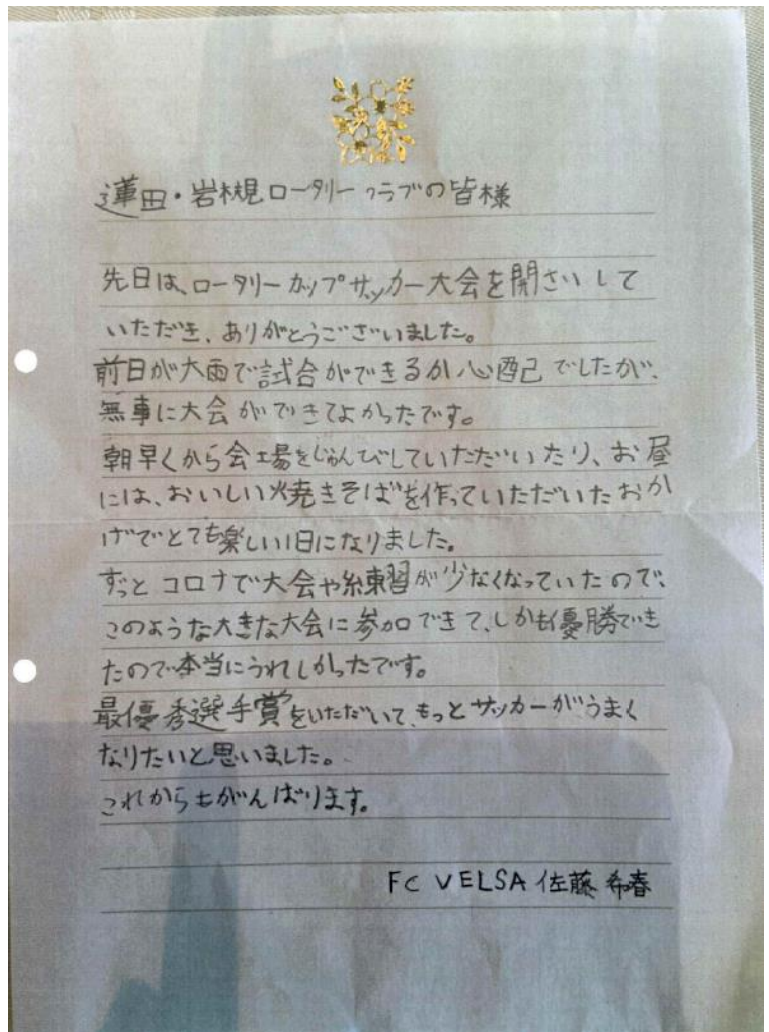 蓮田・岩槻ロータリークラブの皆様
先日は、ロータリーカップサッカー大会を開さいして
いただき、ありがとうございました。
前日が大雨で試合ができるか心配でしたが、
無事に大会ができてよかったです。
朝早くから会場をじゅんびしていただいたり、お昼
には、おいしい焼きそばを作っていただいたおか
げでとても楽しい1日になりました。
ずっとコロナで大会や練習が少なくなっていたので、
このような大きな大会に参加できて、しかも優勝でき
たので本当にうれしかったです。
最優秀選手賞をいただいて、もっとサッカーがうまく
なりたいと思いました。
これからもがんばります。
FC VELSA 佐藤 希春